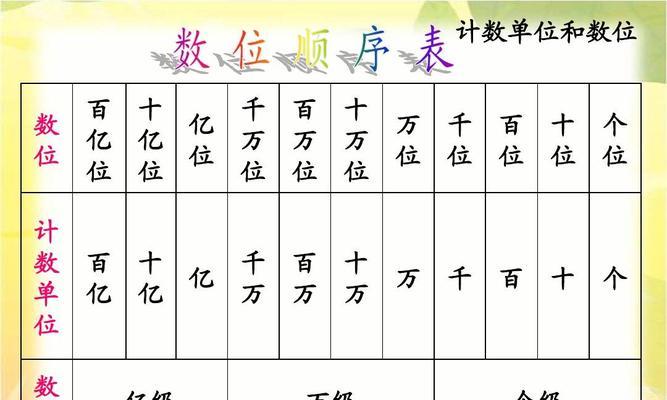 数位顺序表
计数单位和数位
数位 百亿位 十亿位 亿位 千万位 百万位 十万位 万位 千位 百位 十位 个位
计数单位 百亿 十亿 亿 千万 百万 十万 万 千 百 十 个
数 亿级 万级 个级